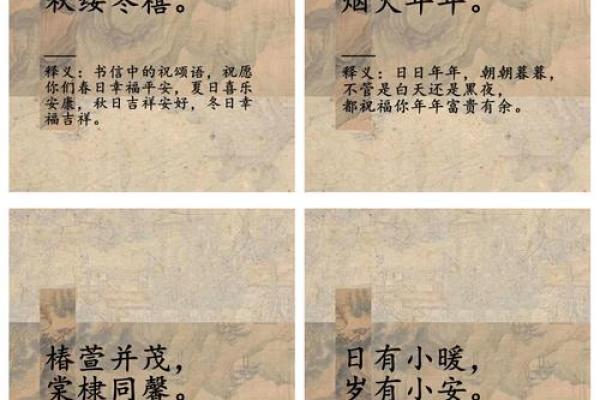 秋绥冬禧。
释义：书信中的祝颂语，祝愿
你们春日幸福平安，夏日喜乐
安康，秋日吉祥安好，冬日幸
福吉祥。
烟火年年。
释义：日日年年，朝朝暮暮，
不管是白天还是黑夜，
都祝福你年年富贵有余。
椿萱并茂，
棠棣同馨。
日有小暖，
岁有小安。